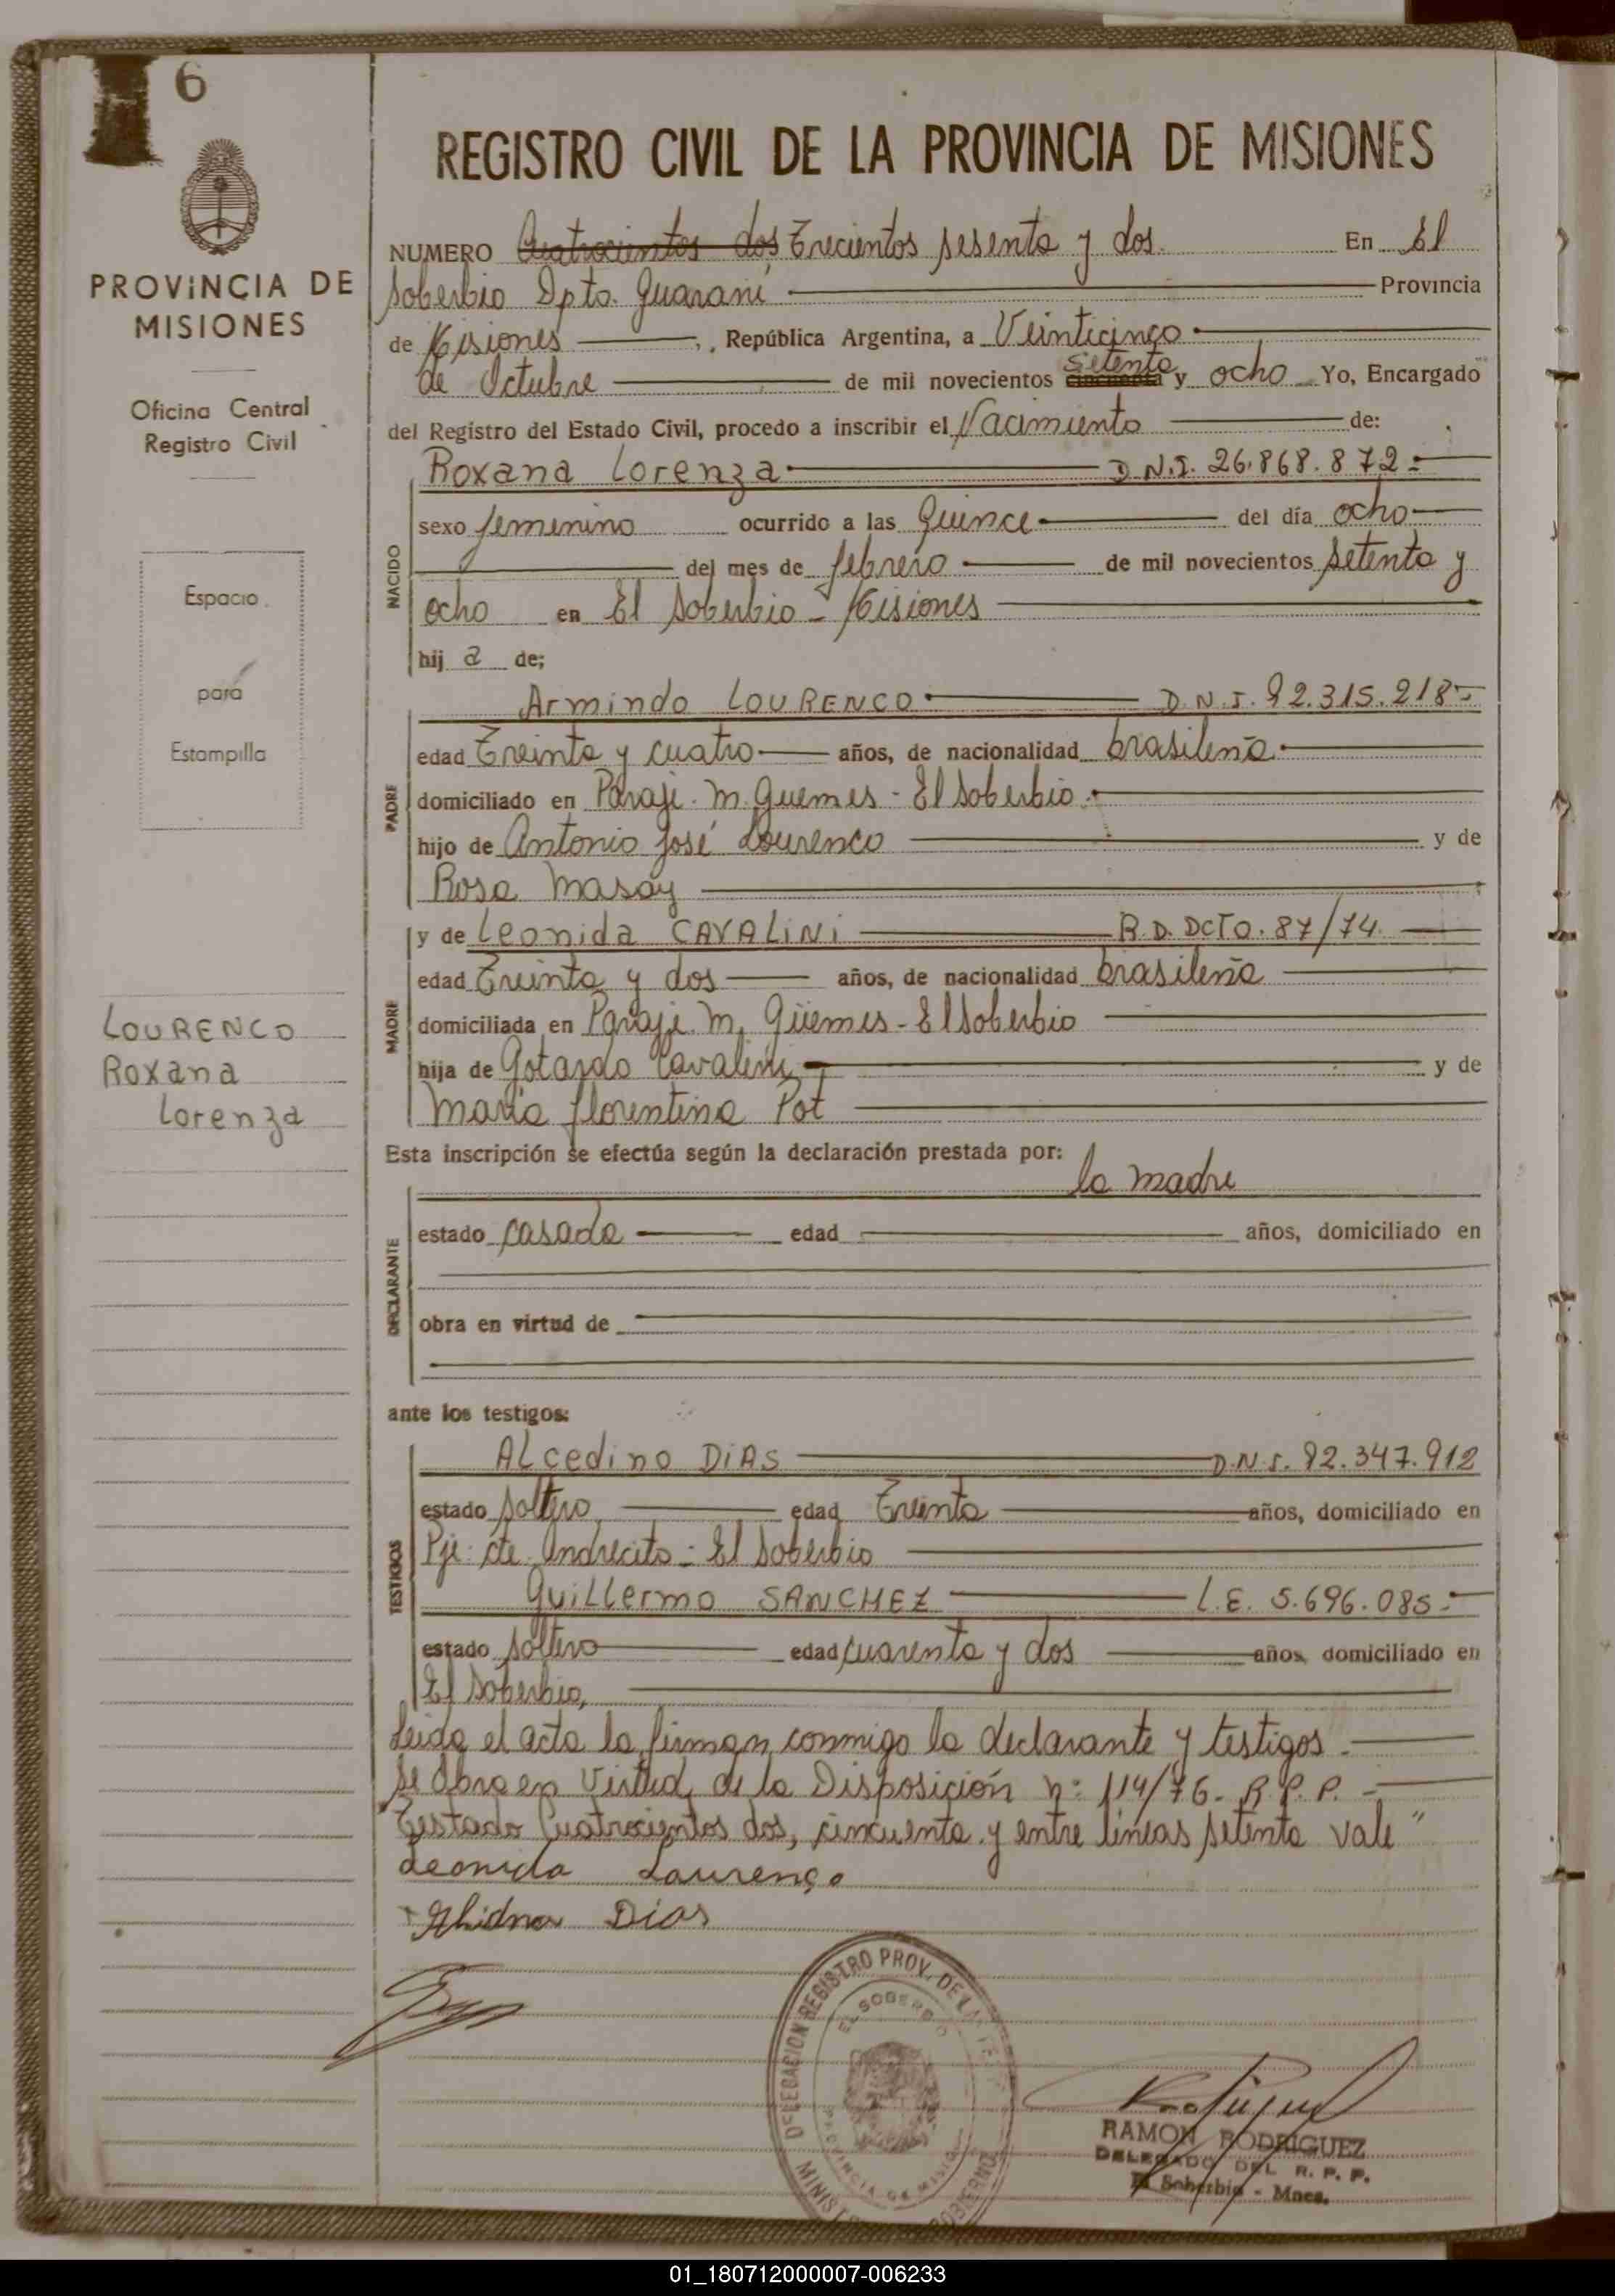 6
PROVINCIA DE
MISIONES
Oficina Central
Registro Civil
Espacio
para
Estampilla
LOURENCO
Roxana
Lorenza
REGISTRO CIVIL DE LA PROVINCIA DE MISIONES
NUMERO Cuatrocientos dos Trecientos sesenta y dos. En El
Soberbio Dpto. Guaraní Provincia
de Misiones, República Argentina, a Veinticinco
de Octubre de mil novecientos cincuenta setenta y ocho Yo, Encargado
del Registro del Estado Civil, procedo a inscribir el Nacimiento de:
NACIDO
Roxana Lorenza D.N.I. 26.868.872.-
sexo femenino ocurrido a las Quince del día ocho
del mes de febrero de mil novecientos setenta y
ocho en El Soberbio - Misiones
hij a de;
PADRE
Armindo LOURENCO D.N.I. 92.315.218-
edad Treinta y cuatro años, de nacionalidad brasileña
domiciliado en Paraje. M. Guemes - El Soberbio.
hijo de Antonio José Lourenco y de
Rosa Masay
MADRE
y de Leonida CAVALINI R.D. DCTO. 87/74
edad Treinta y dos años, de nacionalidad brasileña
domiciliada en Paraje. M. Güemes - El Soberbio
hija de Gotardo Cavalini y de
María Florentina Pot
Esta inscripción se efectúa según la declaración prestada por:
la madre
DECLARANTE
estado casada edad años, domiciliado en
obra en virtud de
ante los testigos:
TESTIGOS
Alcedino DIAS D.N.I. 92.347.912
estado soltero edad Treinta años, domiciliado en
Pje. cte. Andrecito - El Soberbio
Guillermo SANCHEZ L.E. 5.696.085.-
estado soltero edad cuarenta y dos años, domiciliado en
El Soberbio,
Leida el acta la firman conmigo la declarante y testigos.-
Se obra en Virtud de la Disposición n: 114/76. R.P.P.-
"Testado Cuatrocientos dos, cincuenta y entre lineas setenta vale"
Leonida Laurenço
Dias
DELEGACION REGISTRO PROV. DE LA
EL SOBERBIO
PROVINCIA DE MISIONES
RAMON RODRIGUEZ
DELEGADO DEL R. P. P.
El Soberbio - Mnes.
01_180712000007-006233